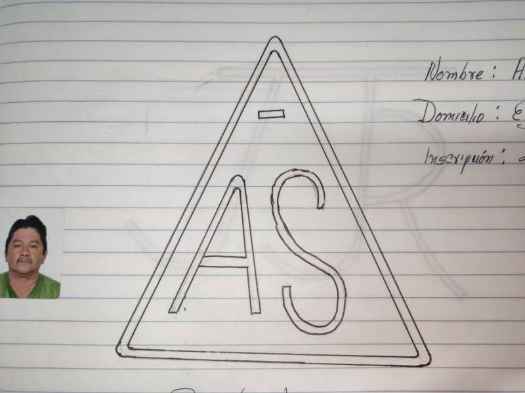 Nombre :
Domicilio :
Inscripción :
-
AS